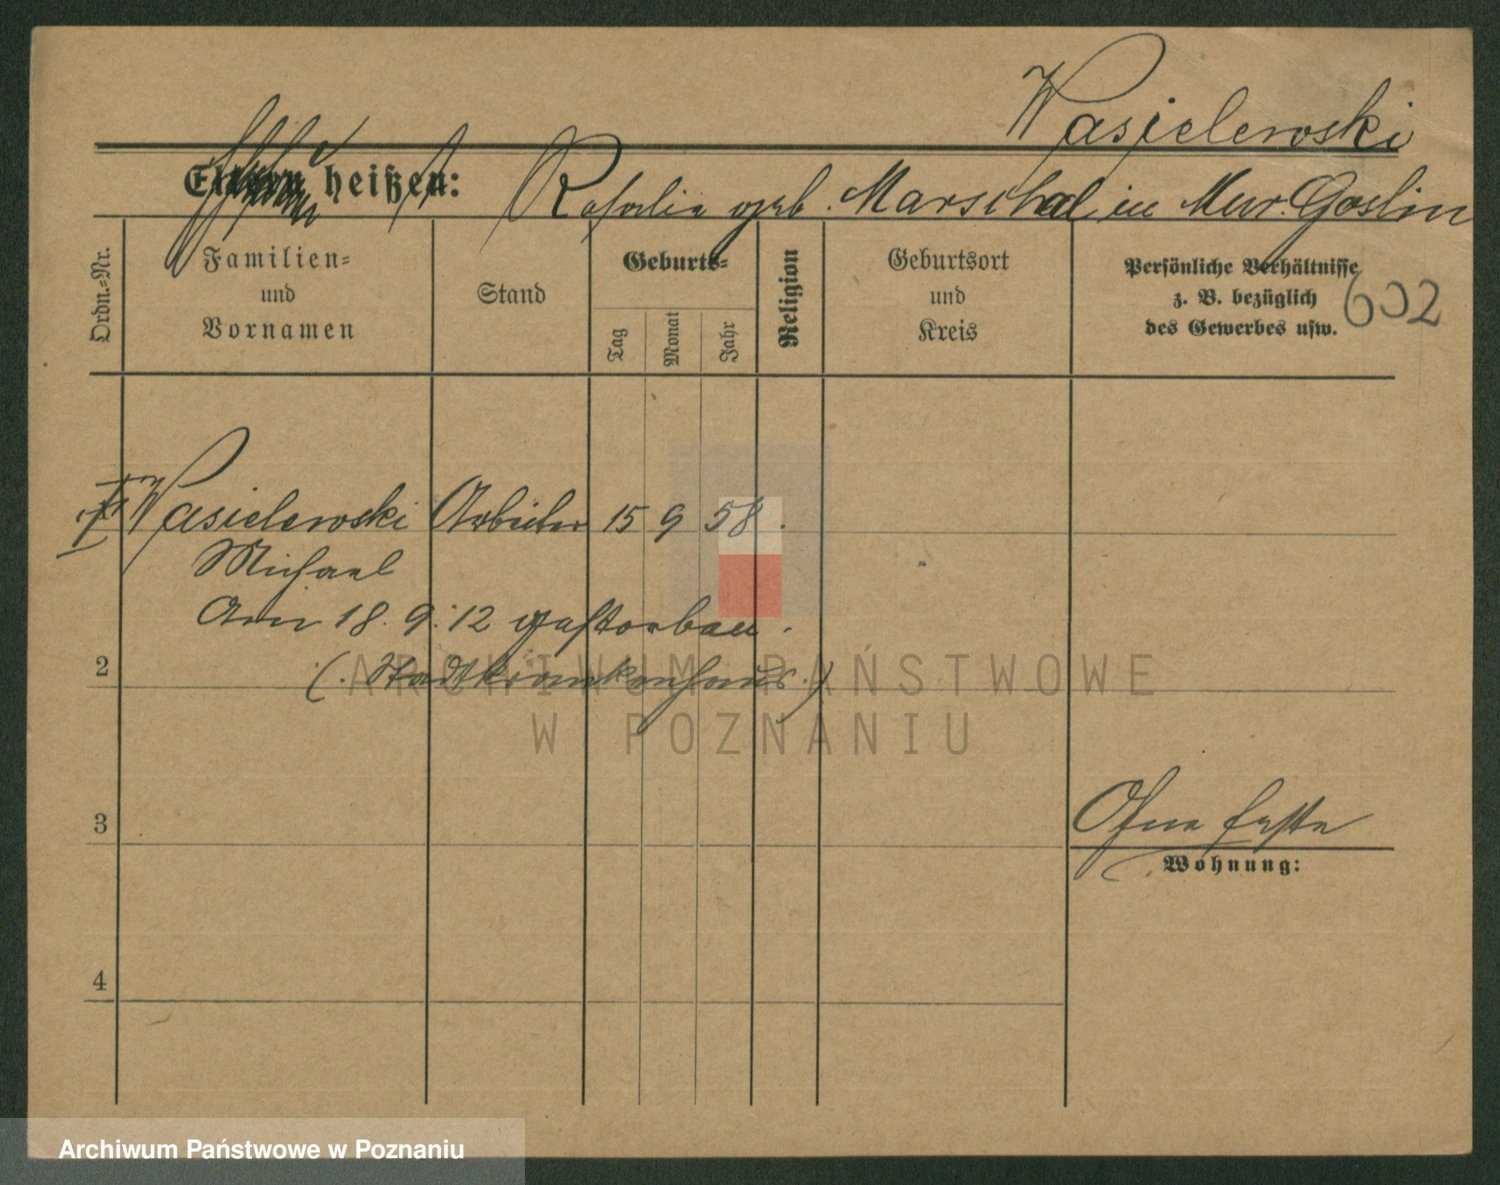 Wasielewski
Eltern heißen: Rosalie geb. Marschal in Mur. Goslin
Ordn.-Nr.
Familien=
und
Vornamen
Stand
Geburts=
Tag
Monat
Jahr
Religion
Geburtsort
und
Kreis
Persönliche Verhältnisse
z. B. bezüglich
des Gewerbes usw.
602
Wasielewski Arbeiter 15 9 58.
Michael
Am 18. 9. 12 gestorben.
2 (Stadtkrankenhaus.)
ARCHIWUM PAŃSTWOWE
W POZNANIU
3 Ohne feste
Wohnung:
4
Archiwum Państwowe w Poznaniu